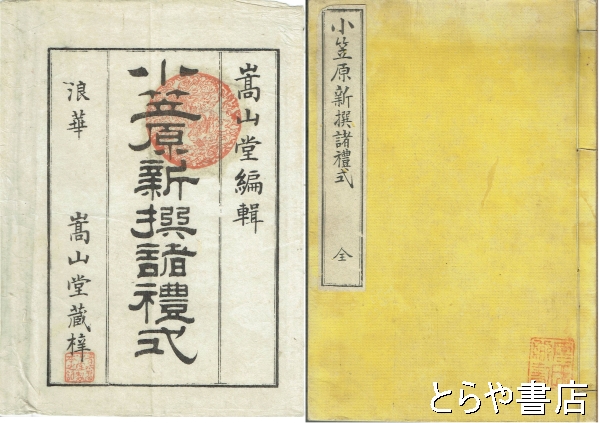 嵩山堂編輯
小笠原新撰諸禮式
浪華 嵩山堂藏梓
小笠原新撰諸禮式 全
とらや書店